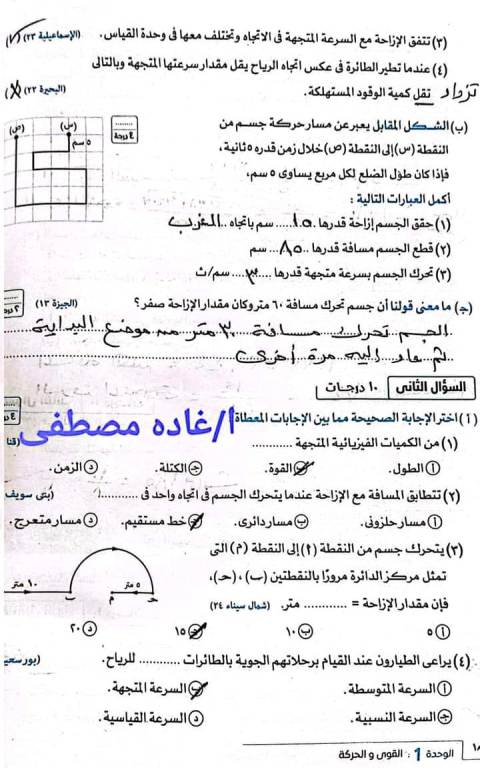 (٣) تتفق الإزاحة مع السرعة المتجهة فى الاتجاه وتختلف معها فى وحدة القياس. (الإسماعيلية ٢٣) (✓)
(٤) عندما تطير الطائرة فى عكس اتجاه الرياح يقل مقدار سرعتها المتجهة وبالتالى
تزداد تقل كمية الوقود المستهلكة. (البحيرة ٢٢) (X)
(ب) الشكل المقابل يعبر عن مسار حركة جسم من
النقطة (س) إلى النقطة (ص) خلال زمن قدره ٥ ثانية،
فإذا كان طول الضلع لكل مربع يساوى ٥ سم،
أكمل العبارات التالية :
٤ درجة
(س)
(ص)
٥ سم
(١) حقق الجسم إزاحة قدرها ..١٥.. سم باتجاه .. الغرب
(٢) قطع الجسم مسافة قدرها ..٨٥.. سم
(٣) تحرك الجسم بسرعة متجهة قدرها ..٣.. سم/ث
(ج) ما معنى قولنا أن جسم تحرك مسافة ٦٠ متر وكان مقدار الإزاحة صفر؟ (الجيزة ١٣)
الجسم تحرك مسافة ٣٠ متر من موضع البداية
ثم عاد إليه مرة أخرى
السؤال الثانى ١٠ درجات
(أ) اختر الإجابة الصحيحة مما بين الإجابات المعطاة
أ/غاده مصطفى
(١) من الكميات الفيزيائية المتجهة ............ (قنا
أ الطول. ب القوة. ج الكتلة. د الزمن.
(٢) تتطابق المسافة مع الإزاحة عندما يتحرك الجسم فى اتجاه واحد فى ............ (بنى سويف
أ مسار حلزونى. ب مسار دائرى. ج خط مستقيم. د مسار متعرج.
(٣) يتحرك جسم من النقطة (أ) إلى النقطة (م) التى
تمثل مركز الدائرة مرورًا بالنقطتين (ب)، (جـ)،
فإن مقدار الإزاحة = ............ متر. (شمال سيناء ٢٤)
١٠ متر ب م ٥ متر جـ
أ ٥ ب ١٠ ج ١٥ د ٢٠
(٤) يراعى الطيارون عند القيام برحلاتهم الجوية بالطائرات ............ للرياح. (بورسعيد
أ السرعة المتوسطة. ب السرعة المتجهة.
ج السرعة النسبية. د السرعة القياسية.
١٨ الوحدة 1 : القوى و الحركة